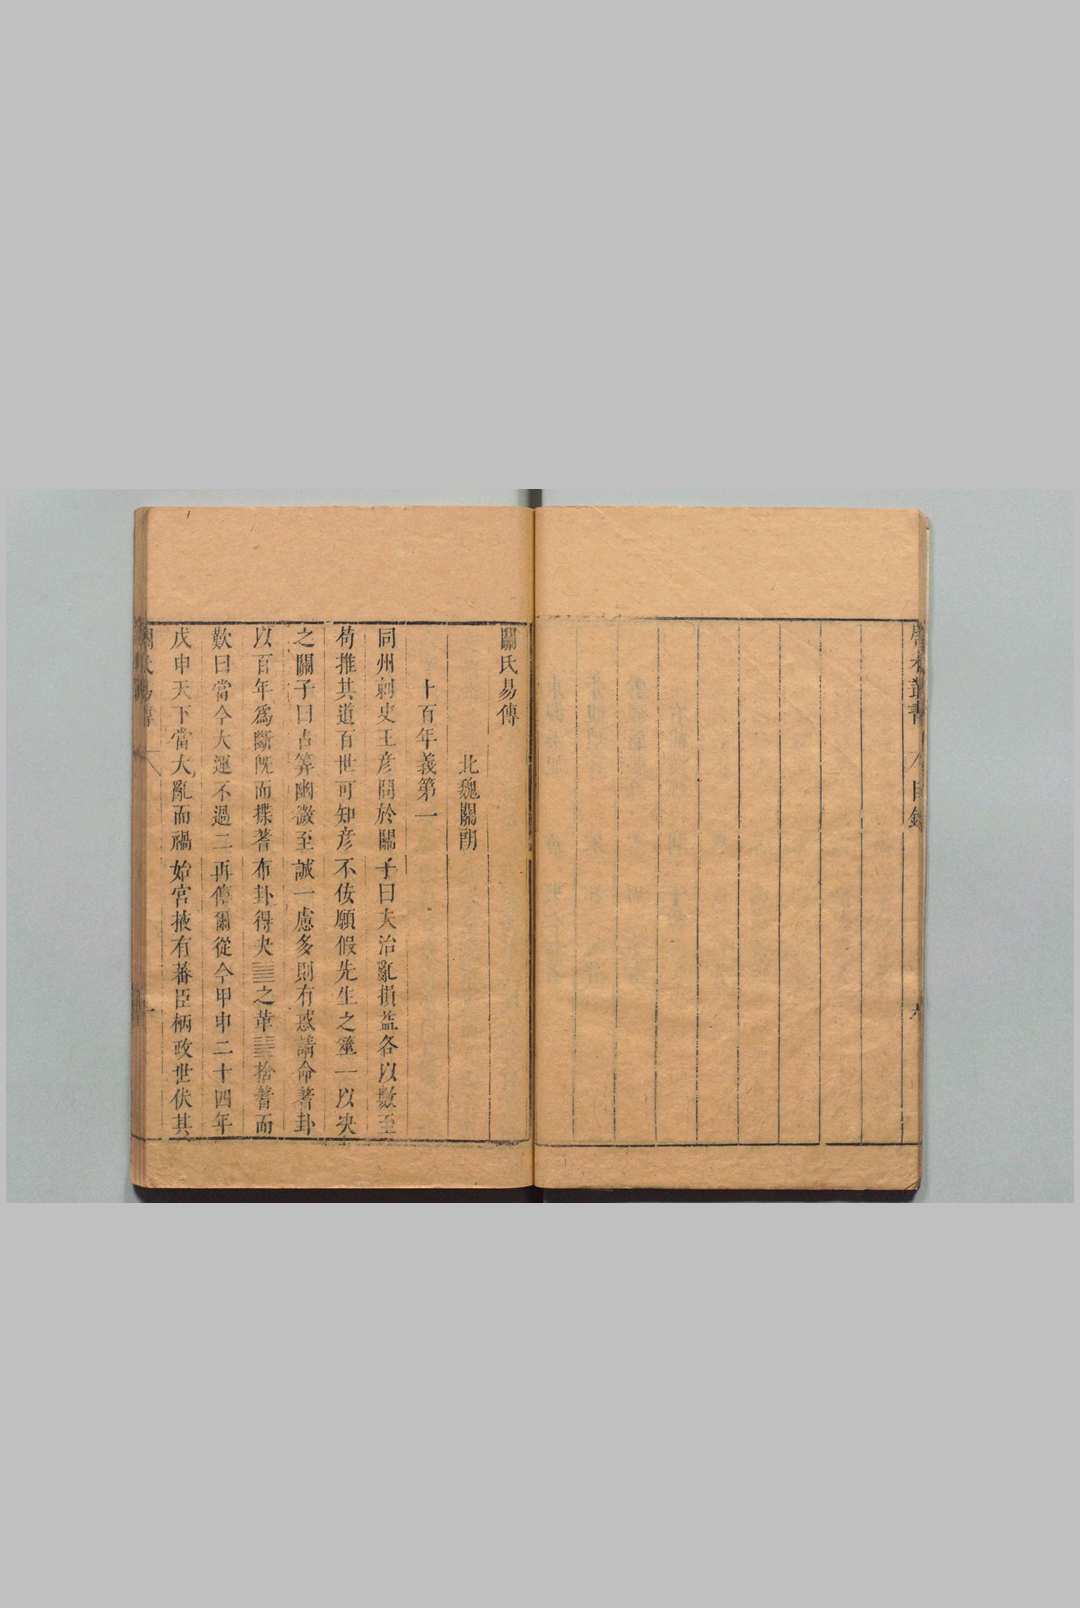 目錄
關氏易傳
北魏關朗
卜百年義第一
同州刺史王彥問於關子曰大治亂損益各以數至
苟推其道百世可知彥不佞願假先生之筮一以決
之關子曰占筭幽微至誠一慮多則有惑請命蓍卦
以百年爲斷旣而揲蓍布卦得夬䷪之革䷰捨蓍而
歎曰當今大運不過二再傳爾從今甲申二十四年
戊申天下當大亂而禍始宮掖有蕃臣柄政世伏其